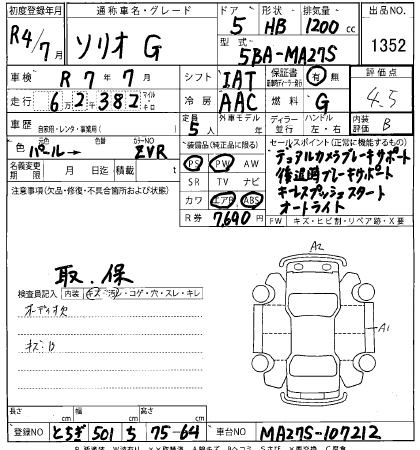 初度登録年月 通称車名・グレード ドア 形状 排気量 出品NO
R4/7月 ソリオ G 5 HB 1200cc 1352
型式 5BA-MA27S
車検 R7年7月 シフト IAT 保証書 有 無 評価点
走行 6万2千382 マイル キロ 冷房 AAC 燃料 G 4.5
車歴 自家用・レンタ・事業用( ) 定員 5人 外車モデル 年 ディーラー 並行 ハンドル 左・右 内装評価 B
色 元色 パール→ 色替 カラーNO ZVR 装備品(純正品に限る) セールスポイント(正常に機能するもの)
名義変更期限 月 日迄 積載 t PS PW AW デュアルカメラブレーキサポート
注意事項(欠品・修復・不具合箇所および状態) SR TV ナビ 後退時ブレーキサポート
カワ エアB ABS キーレスプッシュスタート
R券 7,690円 オートライト
FW キズ・ヒビ割・リペア跡・X要
取.保
検査員記入 内装 キズ・汚レ・コゲ・穴・スレ・キレ
オーディオ欠
キズ・凹
A2
A1
長さ cm 幅 cm 高さ cm
登録NO とちぎ 501 ち 75-64 車台NO MA27S-107212